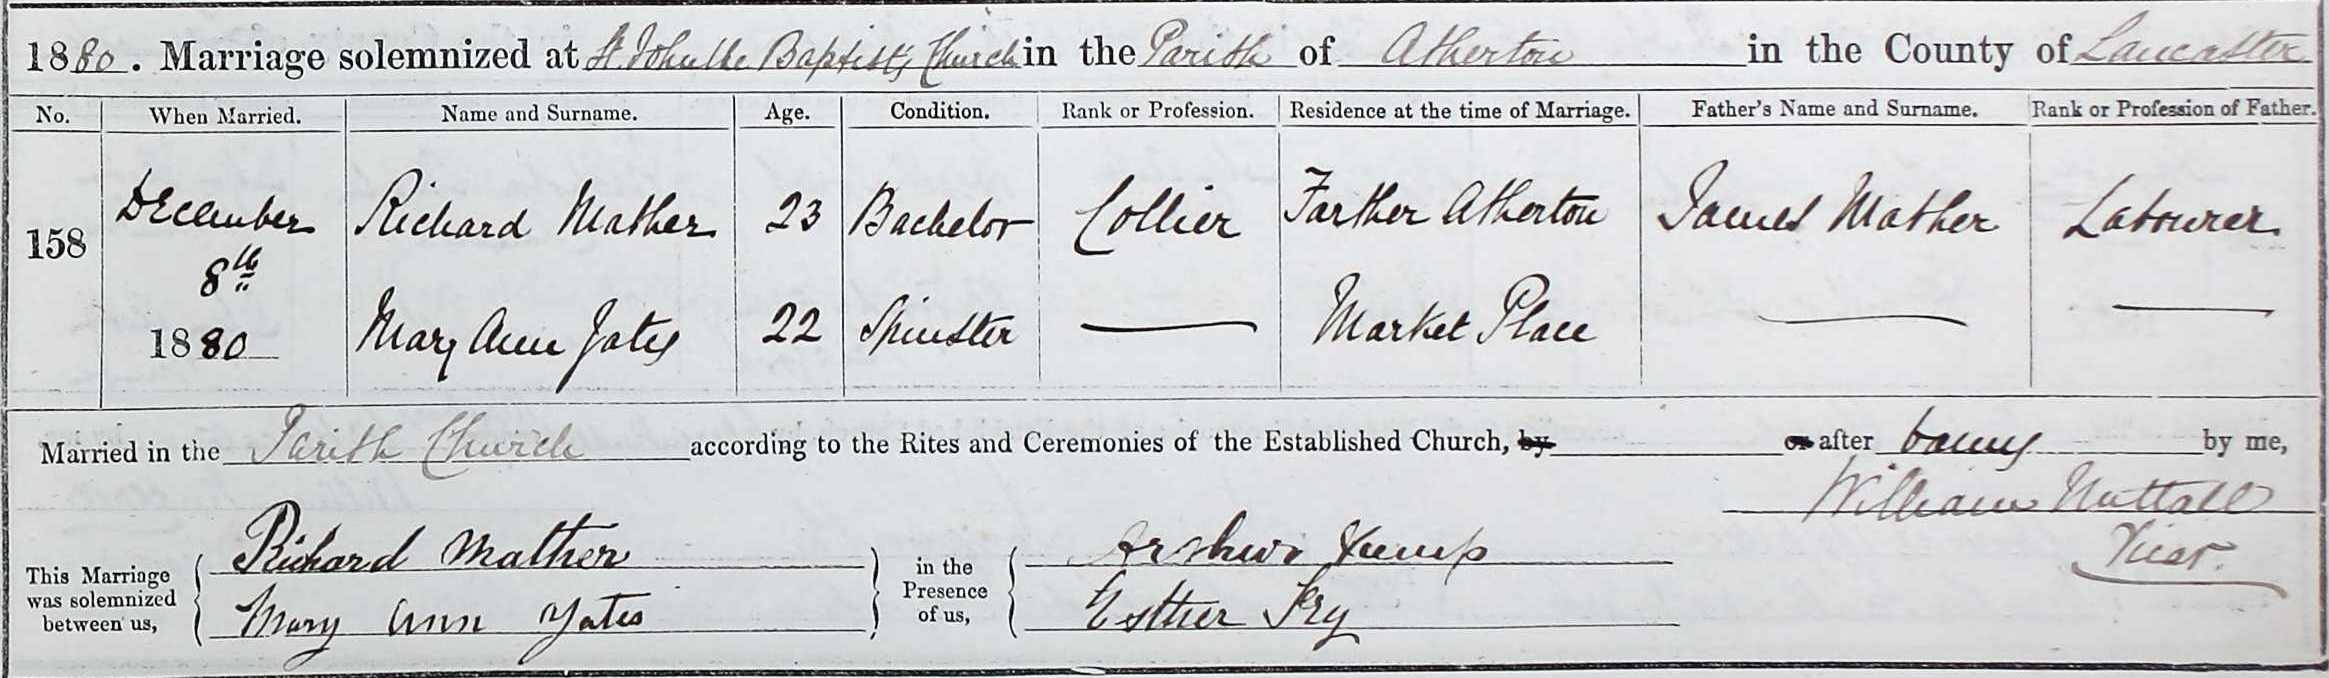 1880. Marriage solemnized at St John the Baptists Church in the Parish of Atherton in the County of Lancaster
No. When Married. Name and Surname. Age. Condition. Rank or Profession. Residence at the time of Marriage. Father's Name and Surname. Rank or Profession of Father.
158 December 8th 1880 Richard Mather 23 Bachelor Collier Farther Atherton James Mather Labourer
Mary Ann Yates 22 Spinster — Market Place — —
Married in the Parish Church according to the Rites and Ceremonies of the Established Church, by or after banns by me,
William Nuttall
Vicar.
This Marriage was solemnized between us, Richard Mather in the Presence of us, Kemp
Mary Ann Yates Esther Fry